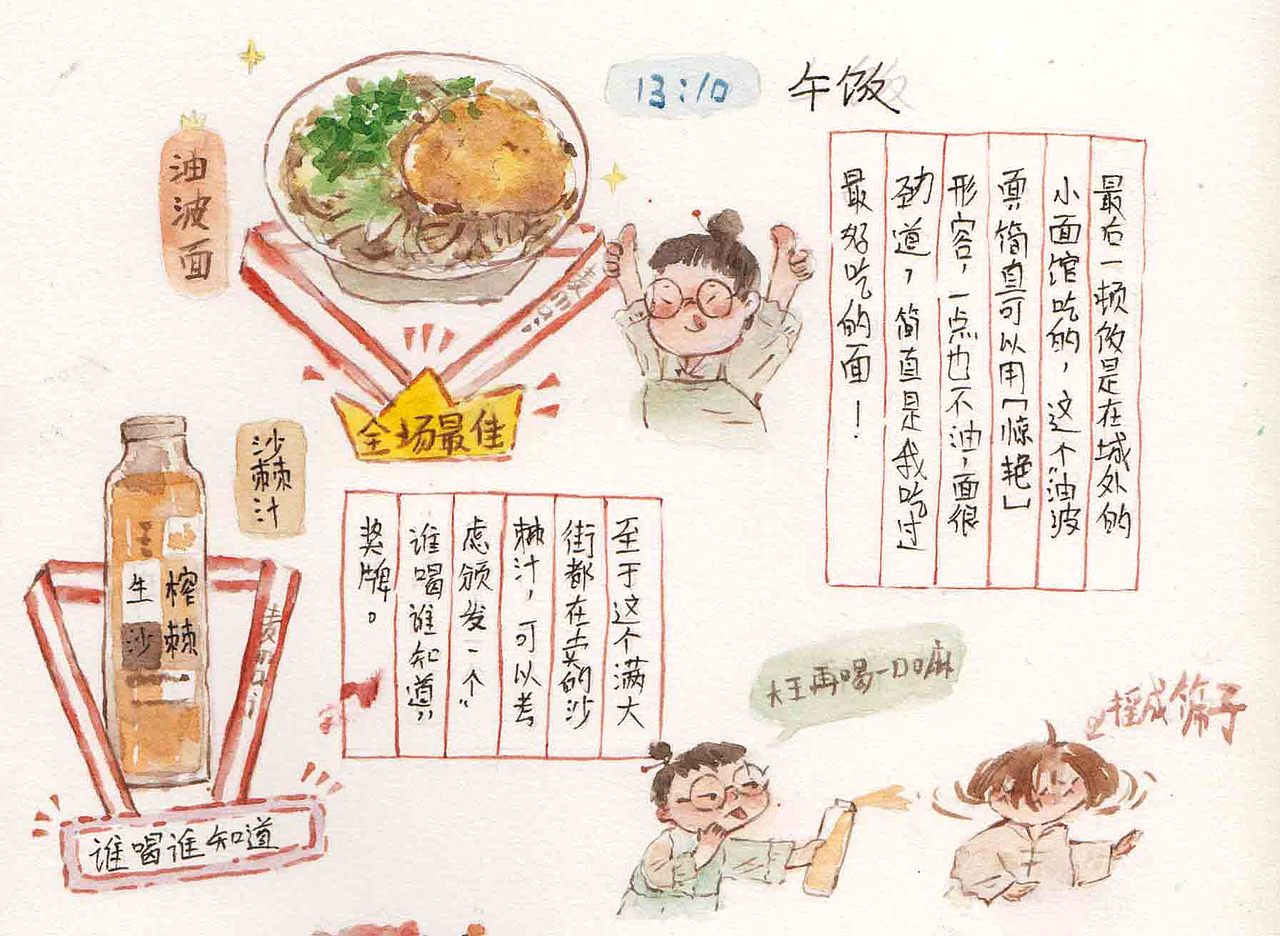 13:10 午饭
油波面
最后一顿饭是在城外的
小面馆吃的，这个"油波
面"简直可以用「惊艳」
形容，一点也不油，面很
劲道，简直是我吃过
最好吃的面！
全场最佳
沙棘汁
生榨
沙棘
至于这个满大
街都在卖的沙
棘汁，可以考
虑颁发一个"
谁喝谁知道"
奖牌。
谁喝谁知道
大王再喝一口麻
摇成筛子